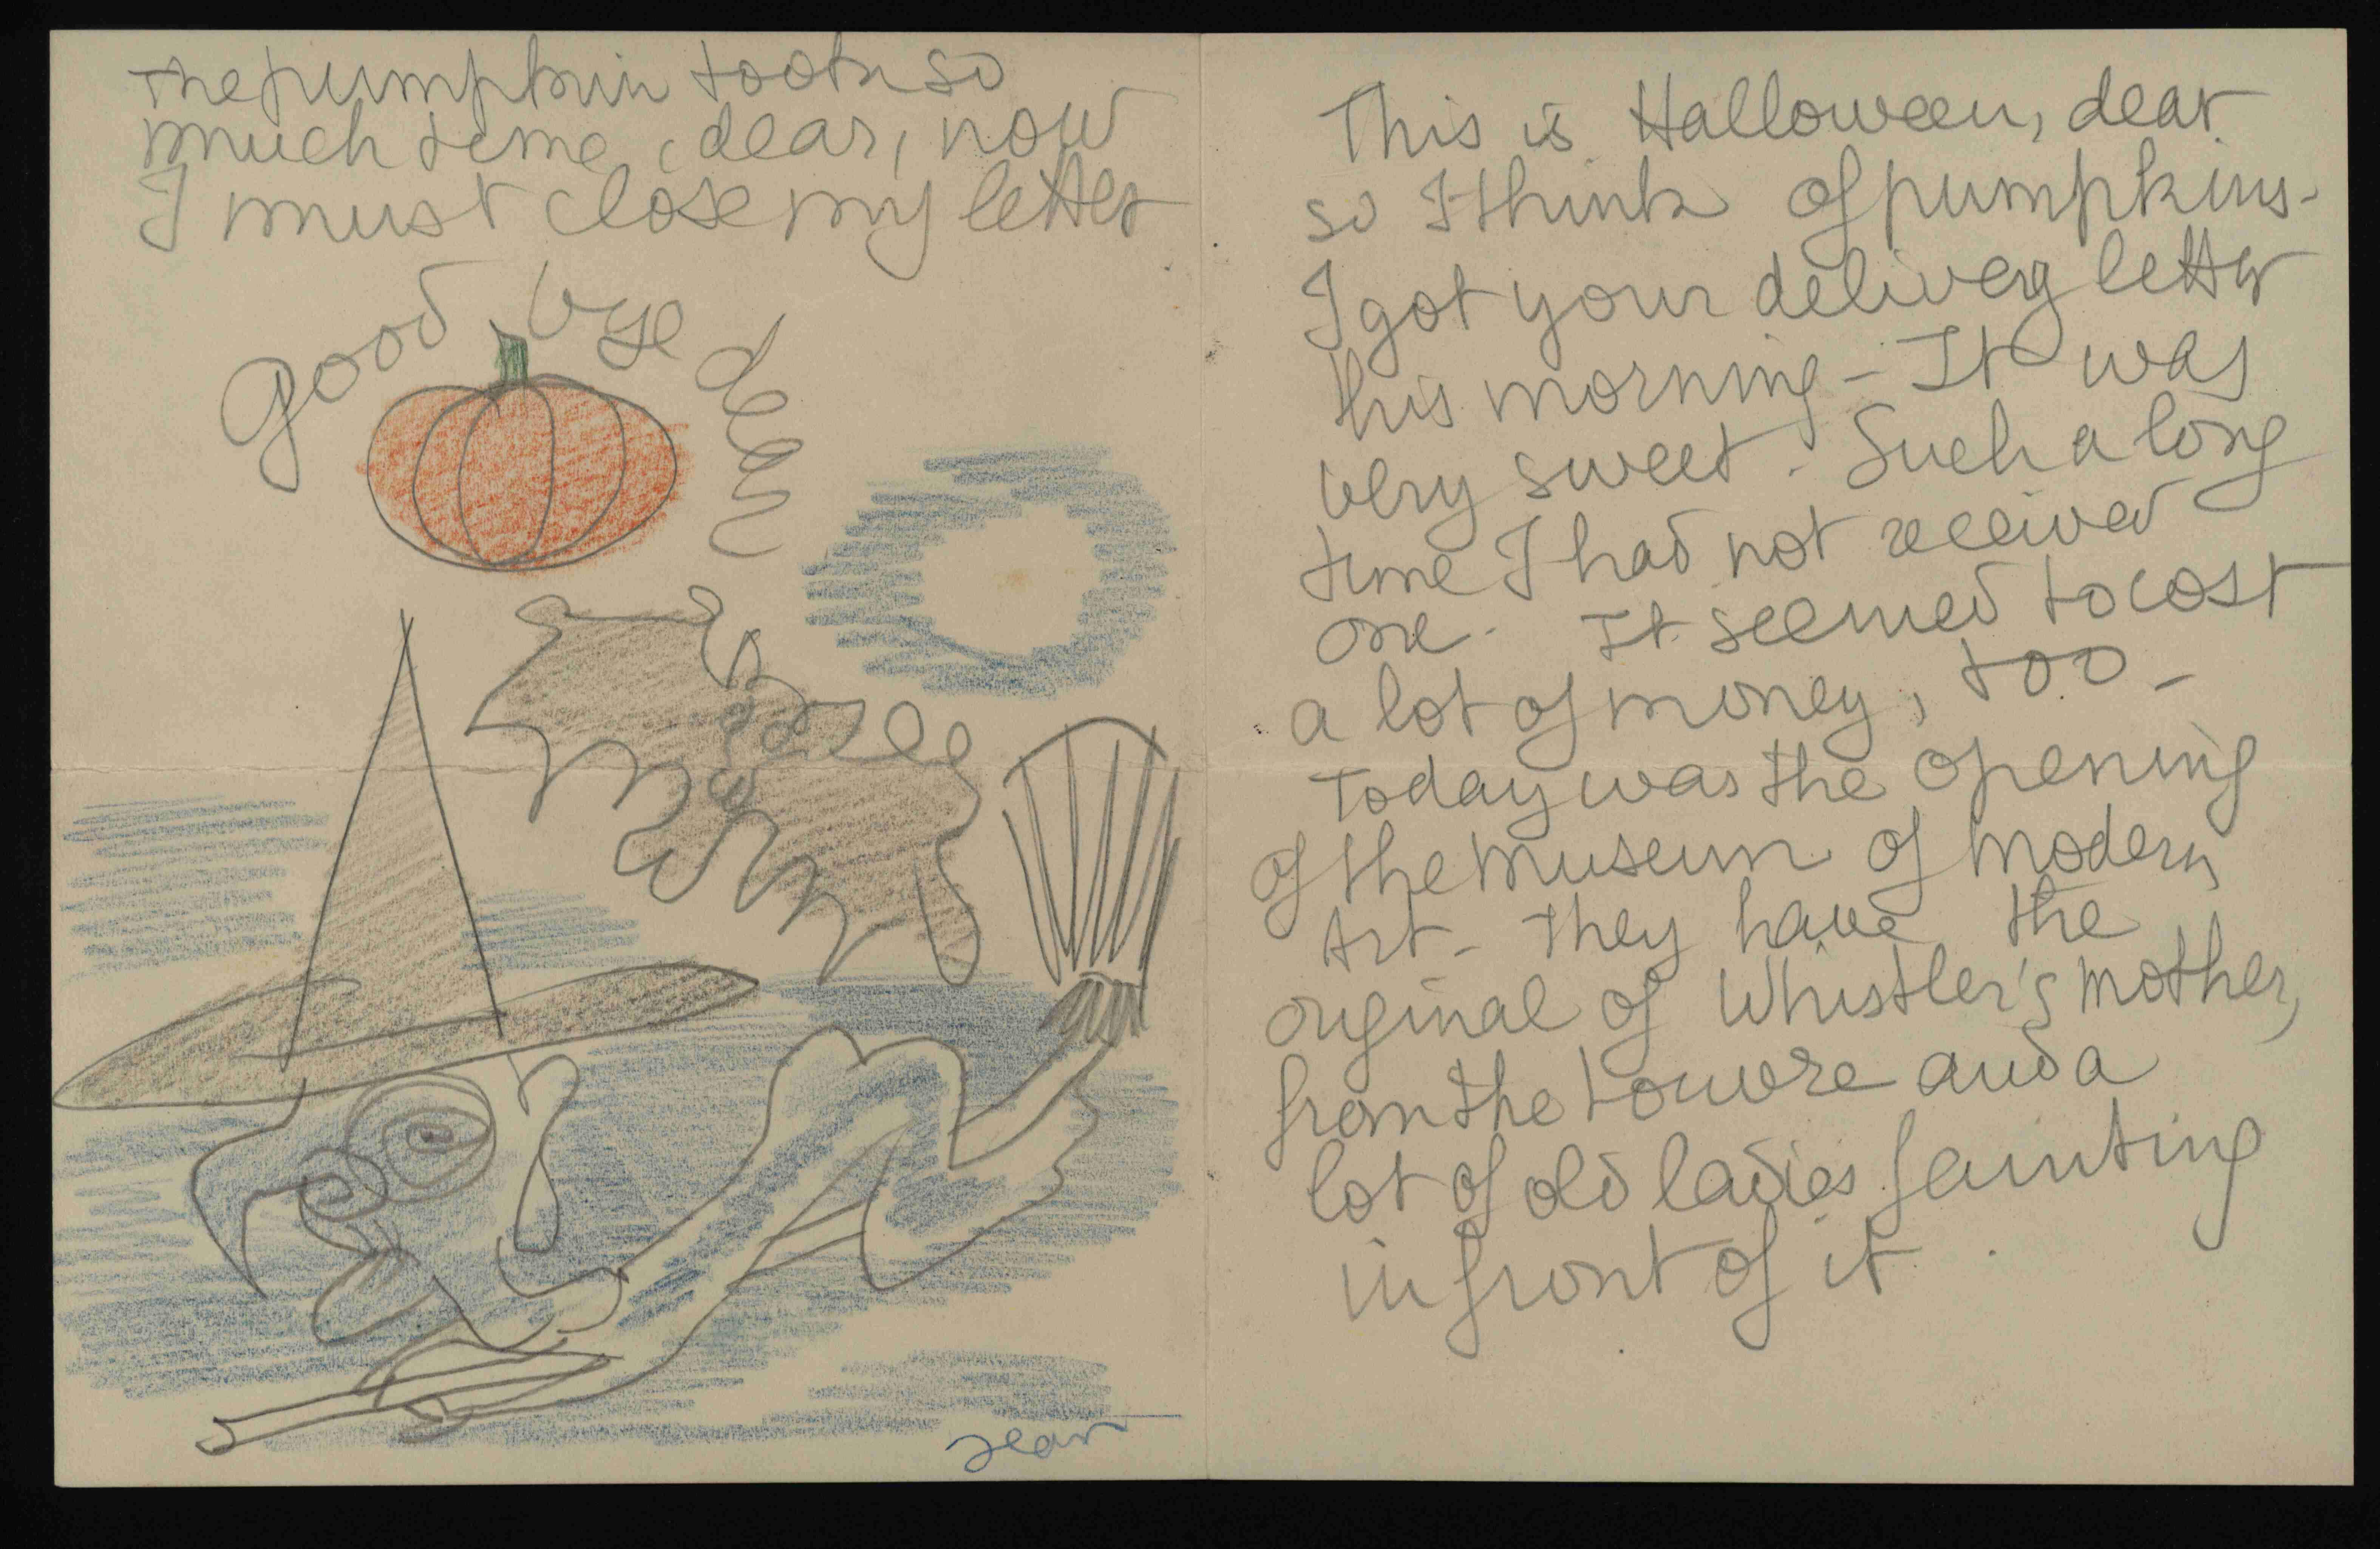 The pumpkin took so
much time, dear, now
I must close my letter
Good bye dear
Jean
This is Halloween, dear
so I think of pumpkins -
I got your delivery letter
this morning - It was
very sweet. Such a long
time I had not received
one - It seemed to cost
a lot of money, too -
Today was the opening
of the museum of modern
Art - They have the
original of Whistler's mother,
from the Louvre and a
lot of old ladies fainting
in front of it.